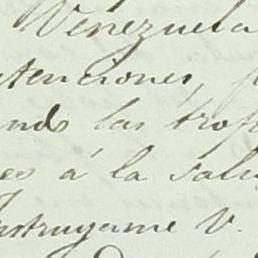 Venezuela
tenciones,
ando las trop
es á la salu
nstruyame V.